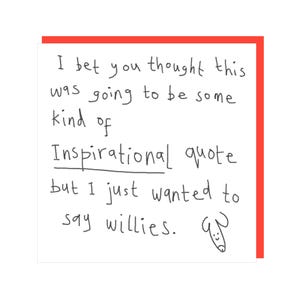 I bet you thought this
was going to be some
kind of
Inspirational quote
but I just wanted to
say willies.